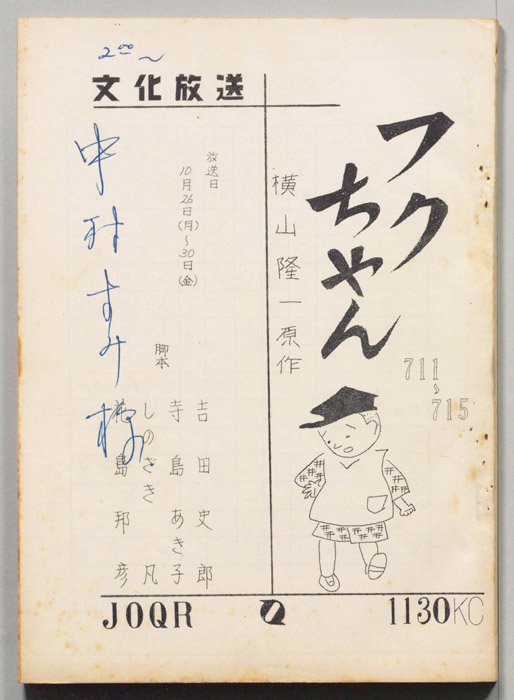 2⁰⁰〜
文化放送
フク
ちゃん
横山隆一原作
711
〜
715
放送日
10月26日(月)〜30日(金)
中村すみ様
脚本
吉田史郎
寺島あき子
しのざき凡
島邦彦
JOQR
1130KC